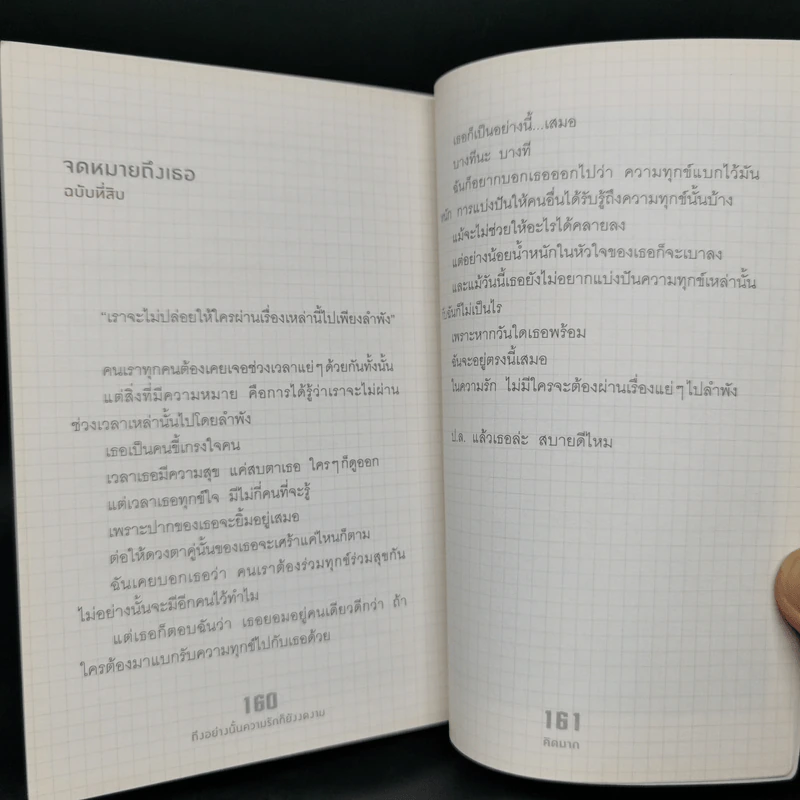 จดหมายถึงเธอ
ฉบับที่สิบ
"เราจะไม่ปล่อยให้ใครผ่านเรื่องเหล่านี้ไปเพียงลำพัง"
คนเราทุกคนต้องเคยเจอช่วงเวลาแย่ๆ ด้วยกันทั้งนั้น
แต่สิ่งที่มีความหมาย คือการได้รู้ว่าเราจะไม่ผ่าน
ช่วงเวลาเหล่านั้นไปโดยลำพัง
เธอเป็นคนขี้เกรงใจคน
เวลาเธอมีความสุข แค่สบตาเธอ ใครๆ ก็ดูออก
แต่เวลาเธอทุกข์ใจ มีไม่กี่คนที่จะรู้
เพราะปากของเธอจะยิ้มอยู่เสมอ
ต่อให้ดวงตาคู่นั้นของเธอจะเศร้าแค่ไหนก็ตาม
ฉันเคยบอกเธอว่า คนเราต้องร่วมทุกข์ร่วมสุขกัน
ไม่อย่างนั้นจะมีอีกคนไว้ทำไม
แต่เธอก็ตอบฉันว่า เธอยอมอยู่คนเดียวดีกว่า ถ้า
ใครต้องมาแบกรับความทุกข์ไปกับเธอด้วย
160
ถึงอย่างนั้นความรักก็ยังงดงาม
เธอก็เป็นอย่างนี้...เสมอ
บางทีนะ บางที
ฉันก็อยากบอกเธอออกไปว่า ความทุกข์แบกไว้มัน
หนัก การแบ่งปันให้คนอื่นได้รับรู้ถึงความทุกข์นั้นบ้าง
แม้จะไม่ช่วยให้อะไรได้คลายลง
แต่อย่างน้อยน้ำหนักในหัวใจของเธอก็จะเบาลง
และแม้วันนี้เธอยังไม่อยากแบ่งปันความทุกข์เหล่านั้น
ฉันก็ไม่เป็นไร
เพราะหากวันใดเธอพร้อม
ฉันจะอยู่ตรงนี้เสมอ
ในความรัก ไม่มีใครจะต้องผ่านเรื่องแย่ๆ ไปลำพัง
ป.ล. แล้วเธอล่ะ สบายดีไหม
161
คิดมาก